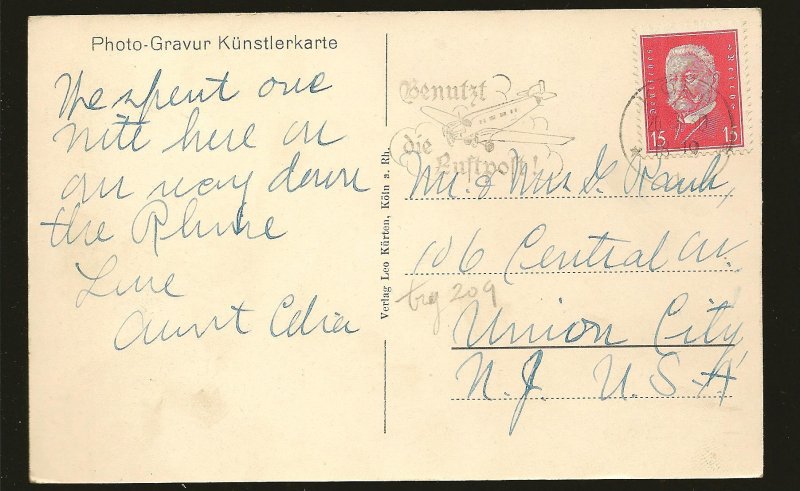 Photo-Gravur Künstlerkarte
We spent one
nite here on
our way down
the Rhine
Love
Aunt Celia
Verlag Leo Kürten, Köln a. Rh.
Benutzt
die
Luftpost!
Deutsches Reich
15 15
Mr. & Mrs G. Hauk,
106 Central Av.
Union City
N. J. U. S. A
209